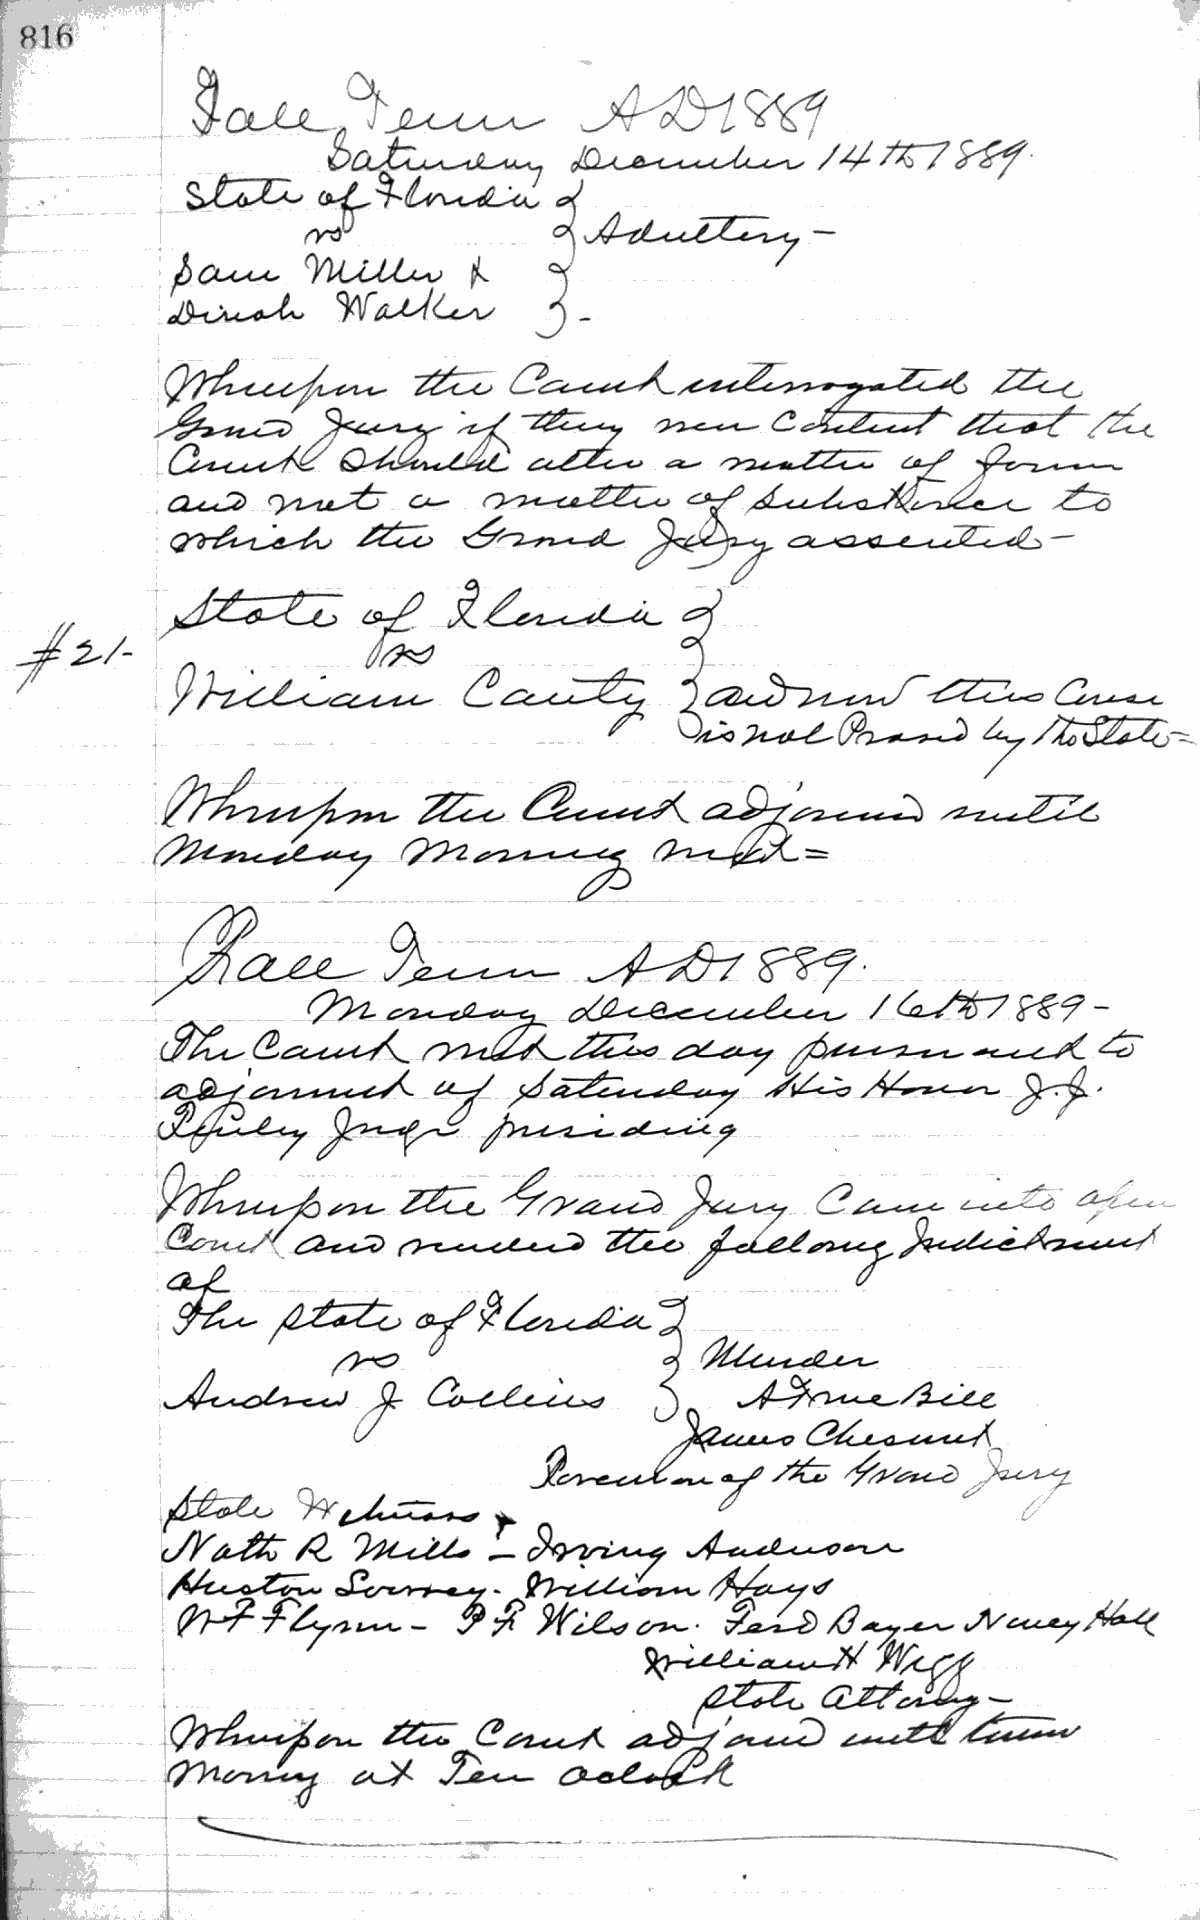 816
Fall Term AD 1889
Saturday December 14th 1889.
State of Florida }
vs } Adultery -
Sam Miller &
Dinah Walker } -
Whereupon the Court interrogated the
Grand Jury if they were Content that the
Court should alter a matter of form
and not a matter of substance to
which the Grand Jury assented -
State of Florida }
#21- vs
William Canty } and now this Cause
is nol Prosed by the State =
Whereupon the Court adjourned until
Monday Morning next =
Fall Term AD 1889.
Monday December 16th 1889 -
The Court met this day pursuant to
adjornment of Saturday His Honor J. J.
Finley Judge presiding
Whereupon the Grand Jury Came into open
Court and rendered the following Indictment
of
The State of Florida }
vs } Murder
Andrew J Collins } A True Bill
James Chesnut
Foreman of the Grand Jury
State Witness
Nath R Mills - Irving Anderson
Huston - William Hays
W F Flynn - P F Wilson. Ferd Bayer Nancy Hall
William H Wigg
State Attorney -
Whereupon the Court adjourned until
Morning at Ten oclock